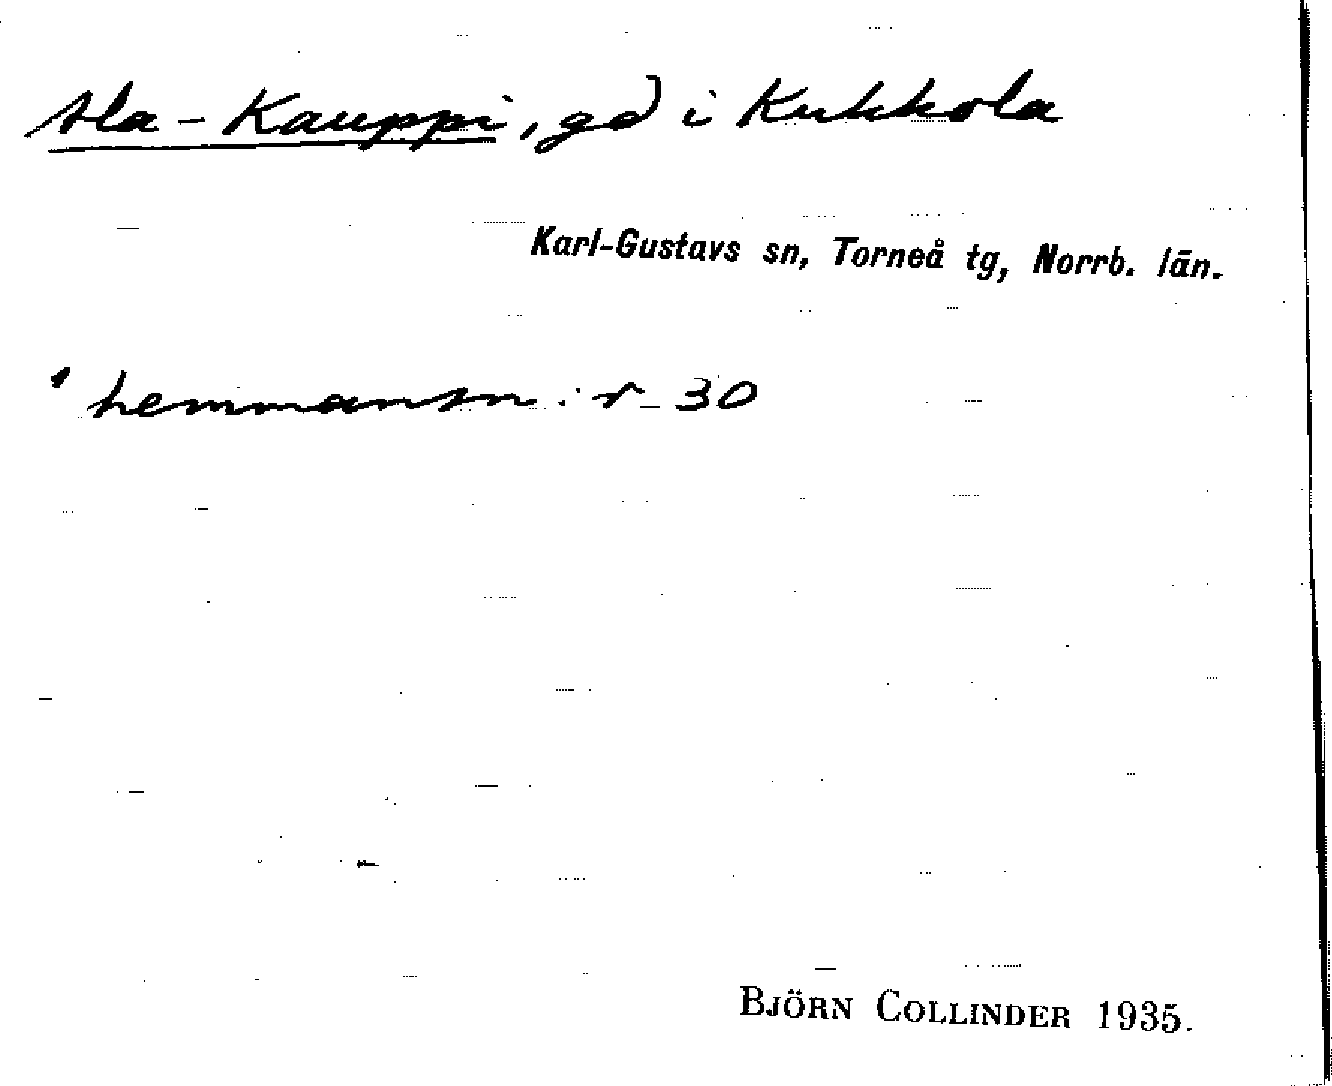 Ala-Kauppi, gd i Kukkola
Karl-Gustavs sn, Torneå tg, Norrb. län.
' hemmansn:r 30
BJÖRN COLLINDER 1935.